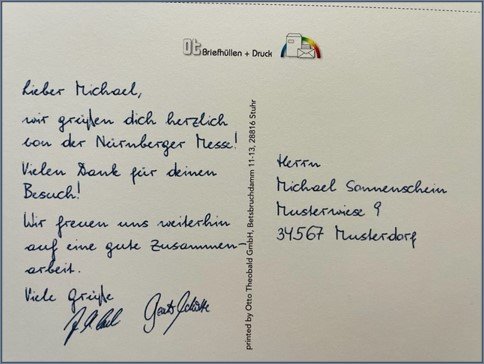 Ot Briefhüllen + Druck
Lieber Michael,
wir grüßen dich herzlich
von der Nürnberger Messe!
Vielen Dank für deinen
Besuch!
Wir freuen uns weiterhin
auf eine gute Zusammen-
arbeit.
Viele Grüße
printed by Otto Theobald GmbH, Betsbruchdamm 11-13, 28816 Stuhr
Herrn
Michael Sonnenschein
Musterwiese 9
34567 Musterdorf